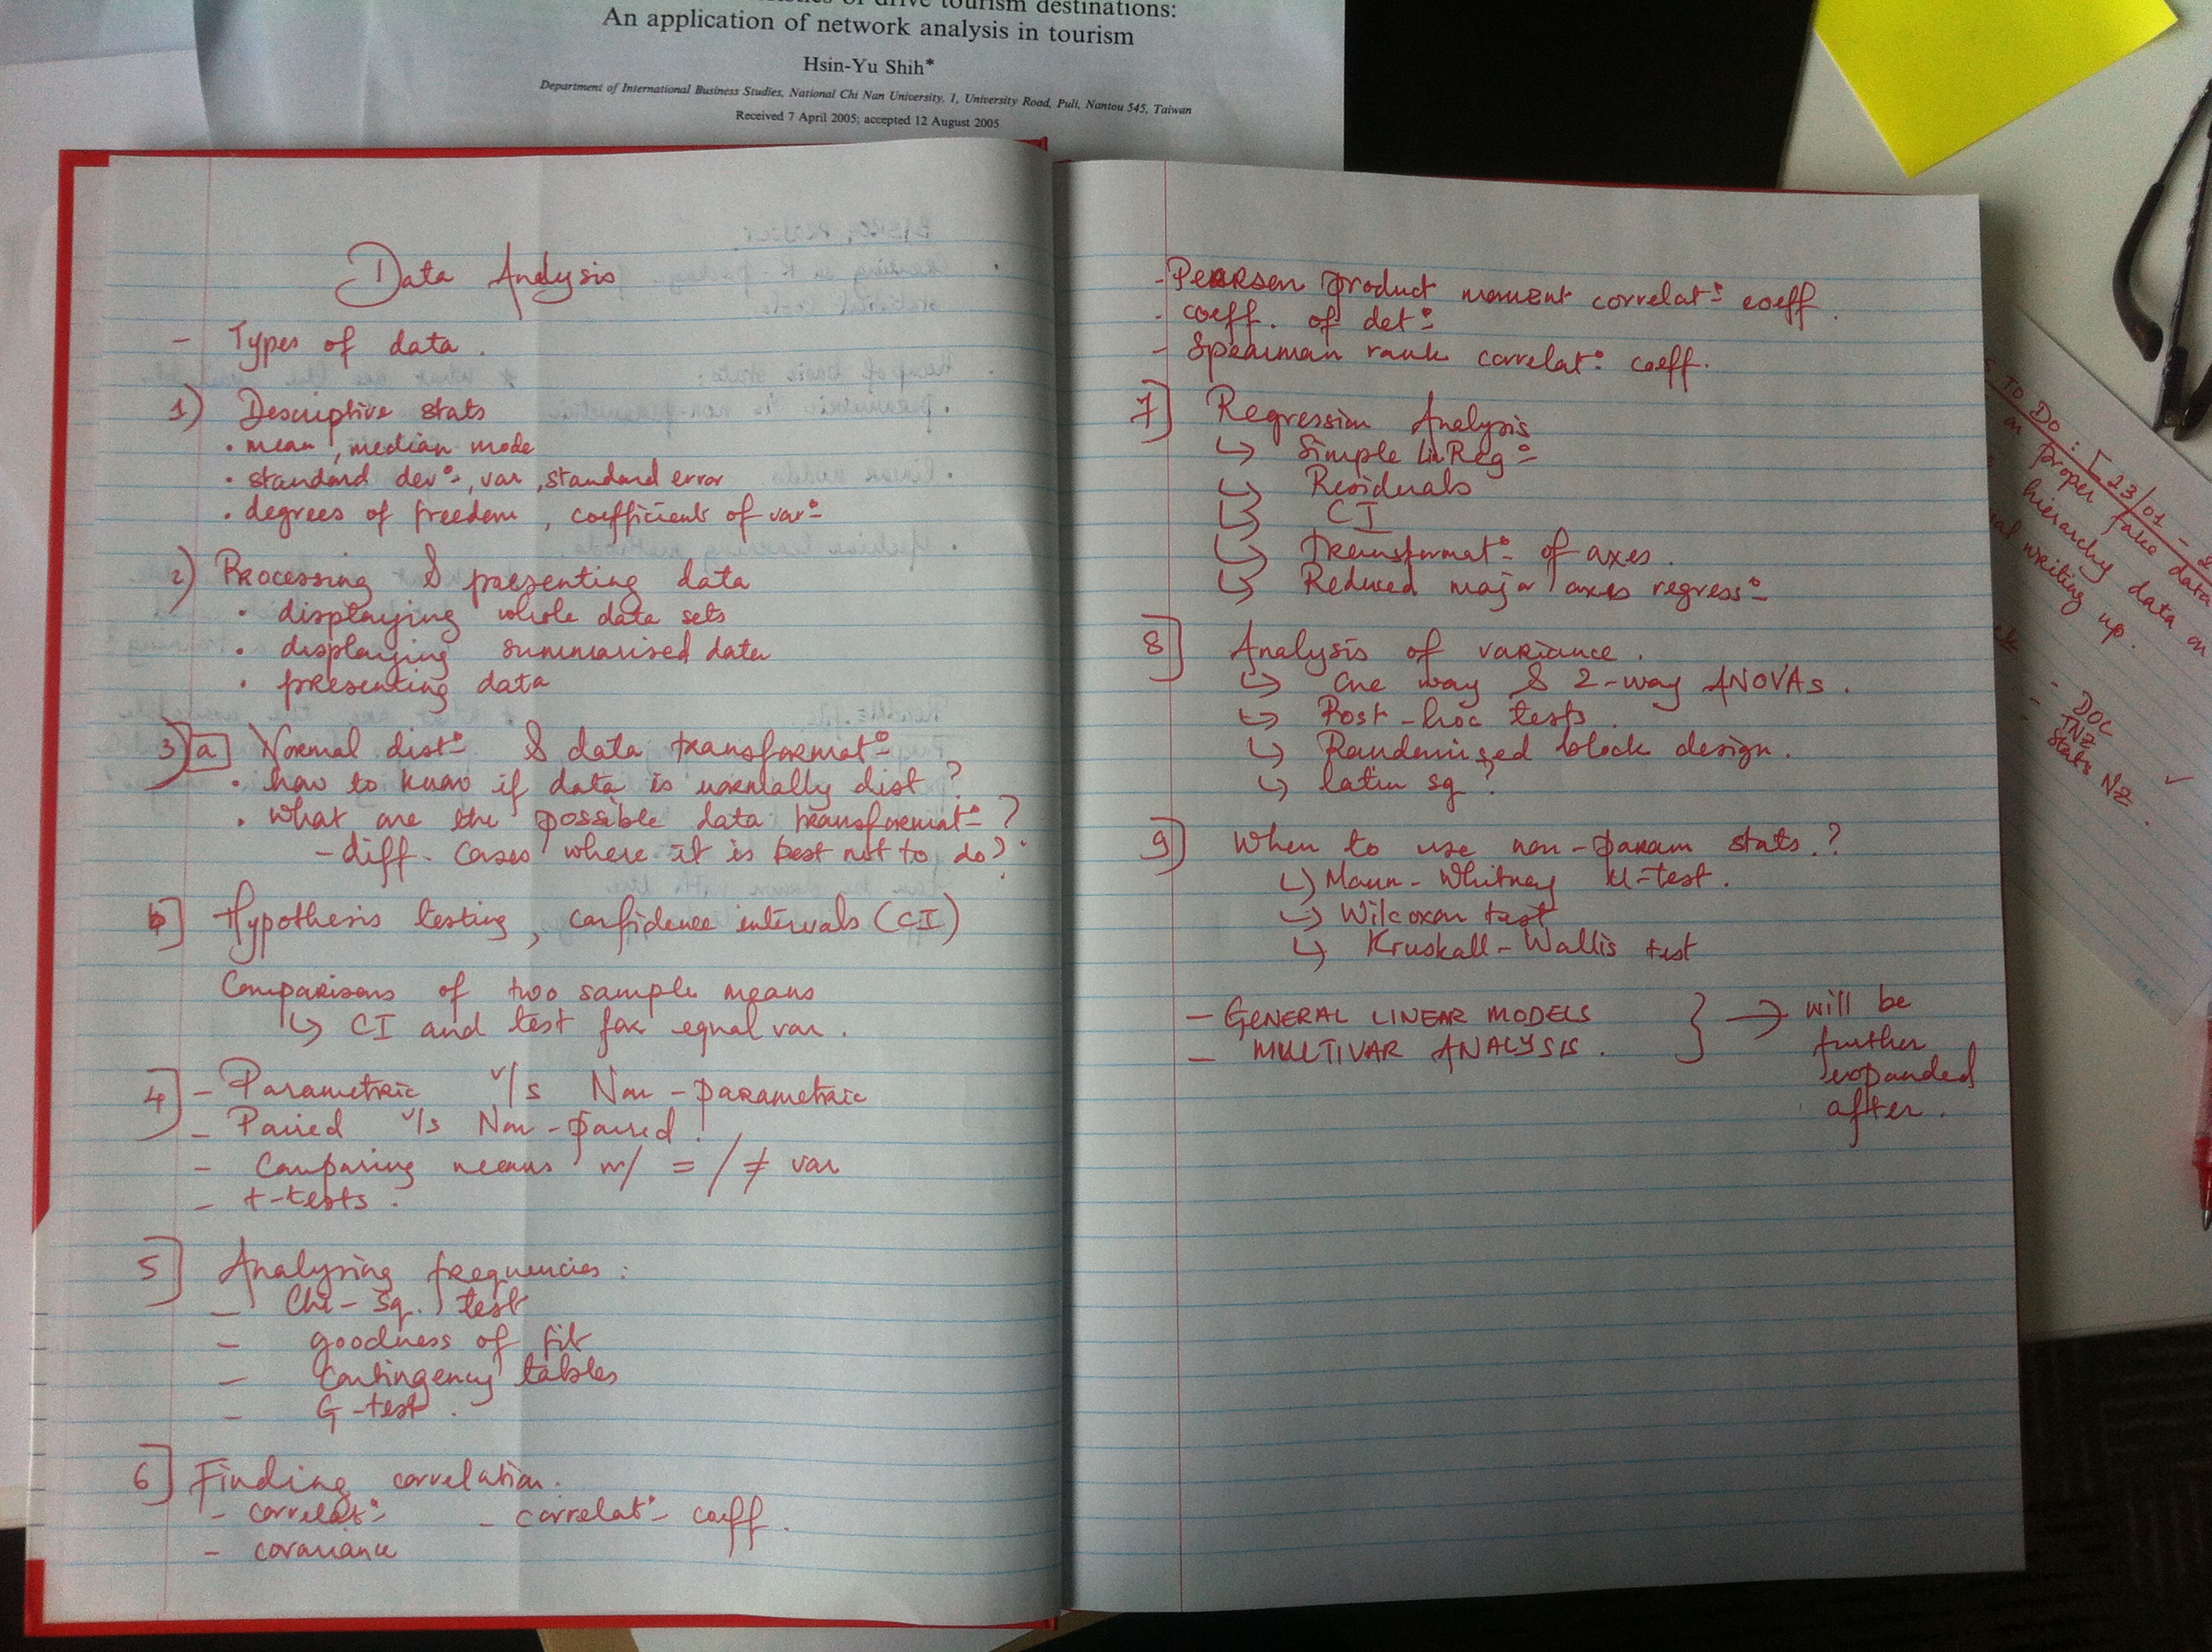 drive tourism destinations:
An application of network analysis in tourism
Hsin-Yu Shih*
Department of International Business Studies, National Chi Nan University, 1, University Road, Puli, Nantou 545, Taiwan
Received 7 April 2005; accepted 12 August 2005
Data Analysis
- Types of data.
1) Descriptive stats
• mean, median mode
• standard devº, var, standard error
• degrees of freedom, coefficient of varº
2) Processing & presenting data
• displaying whole data sets
• displaying summarised data
• presenting data
3) a Normal distº & data transformatº
• how to know if data is normally dist?
• what are the possible data transformatº?
- diff. cases where it is best not to do?
b] Hypothesis testing, confidence intervals (CI)
Comparisons of two sample means
↳ CI and test for equal var.
4] - Parametric v/s Non-parametric
- Paired v/s Non-paired!
- Comparing means w/ = / ≠ var
- t-tests.
5] Analysing frequencies:
- Chi-sq. test
- goodness of fit
- Contingency tables
- G-test.
6] Finding correlation.
- correlatº - correlatº coeff.
- covariance
- Pearson product moment correlatº coeff.
- coeff. of detº
- Spearman rank correlatº coeff.
7] Regression Analysis
↳ Simple LinRegº
↳ Residuals
↳ CI
↳ transformatº of axes.
↳ Reduced major axes regressº
8] Analysis of variance.
↳ One way & 2-way ANOVAs.
↳ Post-hoc tests.
↳ Randomised block design.
↳ latin sq?
9] When to use non-param stats.?
↳ Mann-Whitney U-test.
↳ Wilcoxon test
↳ Kruskall-Wallis test
- GENERAL LINEAR MODELS
- MULTIVAR ANALYSIS.
} → will be
further
expanded
after.
TO DO: [23/01 -
Proper fake data
hierarchy data on
writing up.
- DOC
- TNZ
Stats NZ ✓